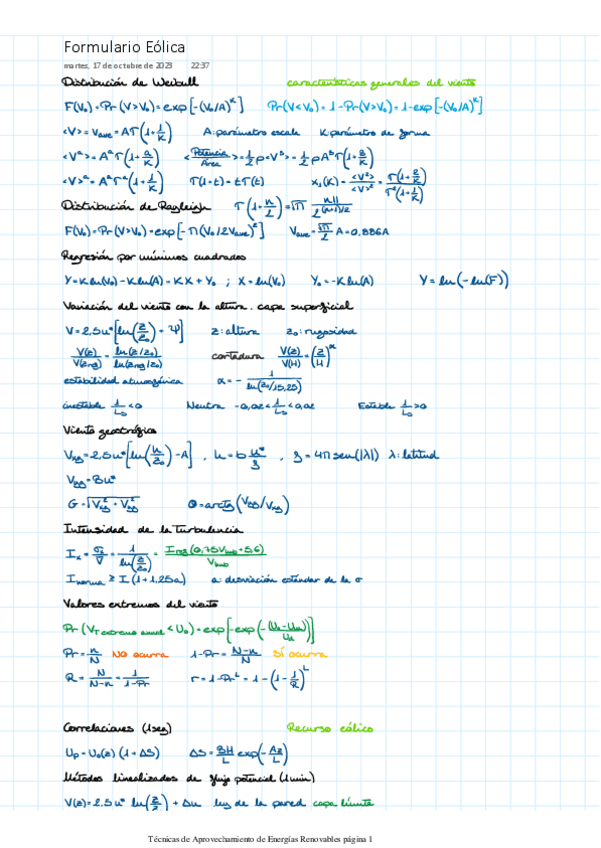 Formulario Eólica
martes, 17 de octubre de 2023 22:37
Distribución de Weibull características generales del viento
F(V₀) = Pr(V>V₀) = exp[-(V₀/A)^K] Pr(V<V₀) = 1-Pr(V>V₀) = 1-exp[-(V₀/A)^K]
<V> = Vave = AΓ(1+1/K) A: parámetro escala K: parámetro de forma
<Vᵃ> = AᵃΓ(1+a/K) <Potencia/Área> = 1/2 ρ<V³> = 1/2 ρA³Γ(1+3/K)
<V>ᵃ = AᵃΓᵃ(1+1/K) Γ(1+t) = tΓ(t) x₁(K) = <V²>/<V>² = Γ(1+2/K)/Γ²(1+1/K)
Distribución de Rayleigh Γ(1+n/2) = √π n!!/2^((n+1)/2)
F(V₀) = Pr(V>V₀) = exp[-π(V₀/2Vave)²] Vave = √π/2 A = 0,886A
Regresión por mínimos cuadrados
Y = K ln(V₀) - K ln(A) = KX + Y₀ ; X = ln(V₀) Y₀ = -K ln(A) Y = ln(-ln(F))
Variación del viento con la altura. capa superficial
V = 2,5u*[ln(z/z₀) - Ψ] z: altura z₀: rugosidad
V(z)/V(zrg) = ln(z/z₀)/ln(zrg/z₀) cortadura V(z)/V(H) = (z/H)^α
estabilidad atmosférica α = - 1/ln(z₀/15,25)
inestable 1/L₀ < 0 Neutra -0,02 < 1/L₀ < 0,02 Estable 1/L₀ > 0
Viento geostrófico
Vxg = 2,5u*[ln(h/z₀) - A] , h = b u*/ʒ , ʒ = 4π sen(|λ|) λ: latitud
Vyg = Bu*
G = √(Vxg² + Vyg²) θ = arctg(Vyg/Vxg)
Intensidad de la turbulencia
Ix = σx/V = 1/ln(z/z₀) = Irg(0,75Vhub + 5,6)/Vhub
Inorma ≥ I(1+1,25a) a: desviación estándar de la σ
Valores extremos del viento
Pr(VT extremo anual < U₀) = exp[-exp(-(U₀-Um)/Uu)]
Pr = n/N NO ocurra 1-Pr = N-n/N SÍ ocurra
R = N/N-n = 1/1-Pr r = 1-Prᴸ = 1-(1-1/R)ᴸ
Correlaciones (1seg) Recurso eólico
Up = U₀(z)(1+ΔS) ΔS = BH/L exp(-Az/L)
Métodos linealizados de flujo potencial (1min)
V(z) = 2.5u* ln(z/z₀) + Δu ley de la pared capa límite
Técnicas de Aprovechamiento de Energías Renovables página 1